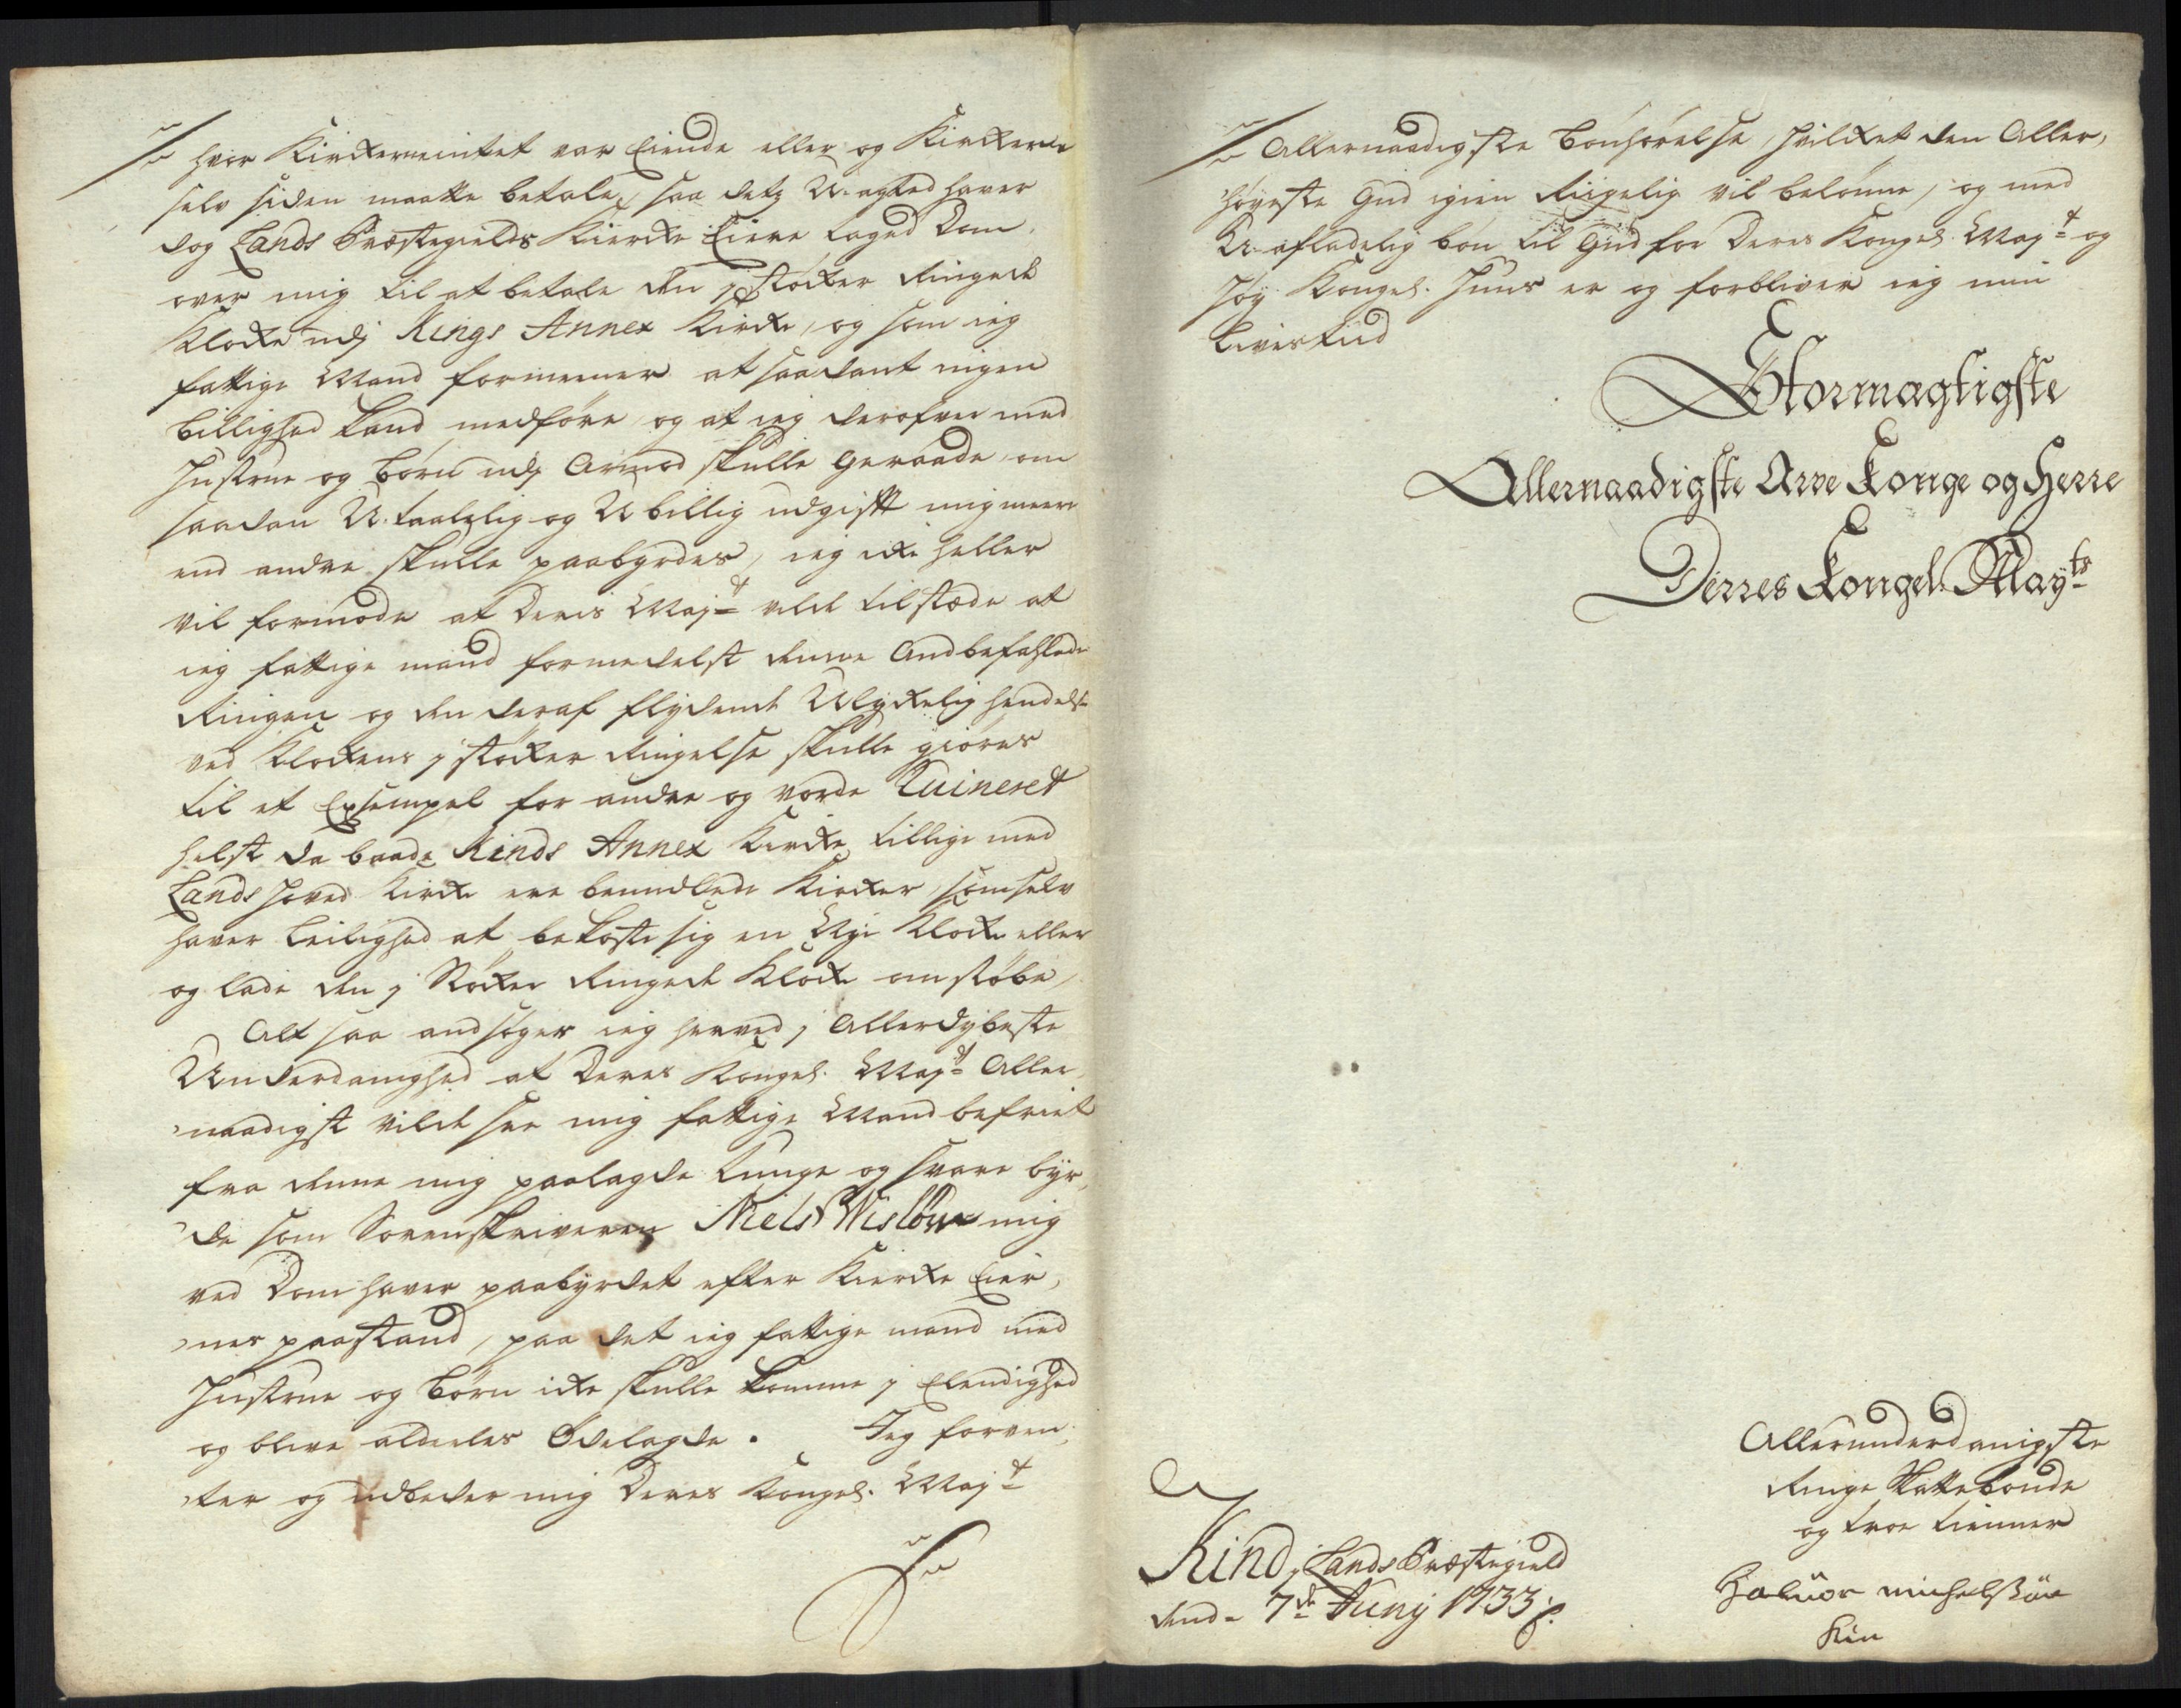 hvor Kirckerneintet var Eiende eller og Kirckerne
selv siden maatte betale, saa detz U-agted haver
dog Lands Præstegields Kiercke Eiere taged Dom
over mig til at betale den j støcker Ringede
Klocke udj Kings Annex Kircke, og som ieg
fattige Mand formeener at saadant ingen
billighed kand medføre og at ieg derofver med
Hustrue og børn udj Armod skulle geraade om
saadan U-taalelig og Ubillig udgift mig meere
end andre skulle paabyrdes, ieg icke heller
vil formode at Deris Maj:t vilde tilstæde at
ieg fattige mand formedelst denne Andbefahlede
Ringen og den deraf flydende Ulyckelig hendelse
ved Klockens j støcker Ringelse skulle giøres
til et Exsempel for andre og vorde Ruineret
helst da baade Kinds Annex Kircke tillige med
Lands Hoved Kircke ere bemidlede Kircker, som selv
haver Leilighed at bekoste sig en Nye Klocke eller
og lade den j Støcker Ringede Klocke omstøbe,
Alt saa andsøger ieg herved j Allerdybeste
Underdanighed at Deres Kongel. Maj:t Aller-
naadigst vilde see mig fattige Mand befriet
fra denne mig paalagde tunge og svare byr-
de som Sorenskriveren Niels Wisløw mig
ved Dom haver paabyrdet efter Kiercke Eier-
nes paastand, paa det ieg fattige mand med
Hustrue og Børn icke skulle komme j Elendighed
og blive aldeeles Ødelagde. Jeg forven-
ter og udbeder mig Deres Kongel. Maj:t
Allernaadigste bønhørelse, hvilcket den Aller-
høyeste Gud igien Riigelig vil belønne, og med
U-afladelig bøn til Gud for Deres Kongel. Maj:t og
Høy Kongel. Huus er og forbliver ieg min
Livestiid
Stormægtigste
Allernaadigste Arve Konge og Herre
Derres Kongel. May:ts
Allerunderdanigste
Ringe Skattebonde
og troe tienner
Kind j Lands Præstegield
dend - 7de Junij 1733
Haluor michelsøn
Kin